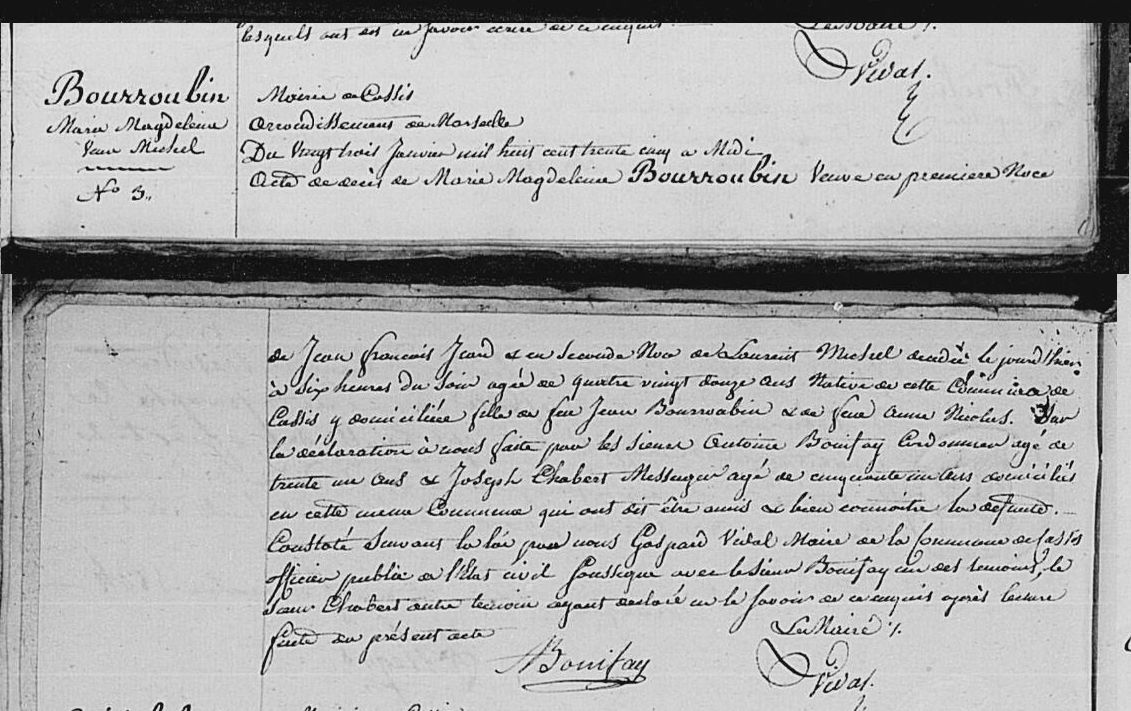 lesquels ont dit ne savoir écrire de ce enquis.
Le Maire /.
Vidal.
Bourroubin
Marie Magdeleine
Veuve Michel
No 3.,
Mairie de Cassis
Arrondissement de Marseille
Du Vingt trois Janvier mil huit cent trente cinq a Midi
Acte de decès de Marie Magdeleine Bourroubin Veuve en premiere Noce
de Jean françois Jeard & en seconde Noce de Laurent Michel decédée le jourd'hier
à six heures du soir agée de quatre vingt douze ans Native de cette Commune de
Cassis y domiciliée fille de feu Jean Bourroubin & de feue Anne Nicolas. Sur
la déclaration à nous faite par les sieurs Antoine Bonifay Cordonnier agé de
trente un ans & Joseph Chabert Messager agé de cinquante un ans domiciliés
en cette meme Commune qui ont dit être amis & bien connoitre la defunte.
Constaté Suivant la loi par nous Gaspard Vidal Maire de la Commune de Cassis
officier public de l'Etat civil soussigné avec le sieur Bonifay un des temoins, le
sieur Chabert autre temoin ayant declaré ne le savoir de ce enquis après lecture
faite du présent acte
Le Maire /.
ABonifay
Vidal.